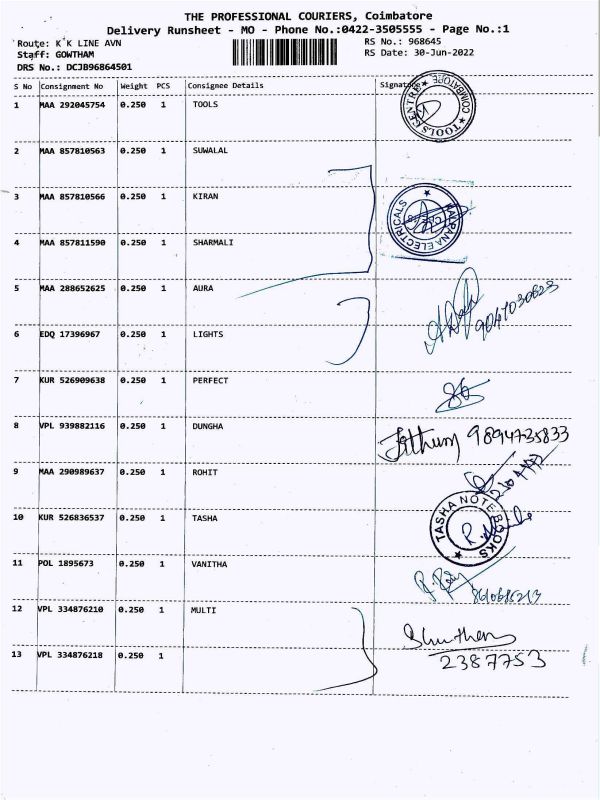 THE PROFESSIONAL COURIERS, Coimbatore
Delivery Runsheet - MO - Phone No.:0422-3505555 - Page No.:1
Route: K K LINE AVN
RS No.: 968645
Staff: GOWTHAM
RS Date: 30-Jun-2022
DRS No.: DCJB96864501
S No Consignment No Weight PCS Consignee Details Signature
1 MAA 292045754 0.250 1 TOOLS
TOOLS CENTRE COIMBATORE
2 MAA 857810563 0.250 1 SUWALAL
3 MAA 857810566 0.250 1 KIRAN
KALPANA ELECTRICALS
4 MAA 857811590 0.250 1 SHARMALI
5 MAA 288652625 0.250 1 AURA
6 EDQ 17396967 0.250 1 LIGHTS
7 KUR 526909638 0.250 1 PERFECT
8 VPL 939882116 0.250 1 DUNGHA
9894735833
9 MAA 290989637 0.250 1 ROHIT
10 KUR 526836537 0.250 1 TASHA
TASHA NOTE BOOKS
11 POL 1895673 0.250 1 VANITHA
12 VPL 334876210 0.250 1 MULTI
13 VPL 334876218 0.250 1
2387753